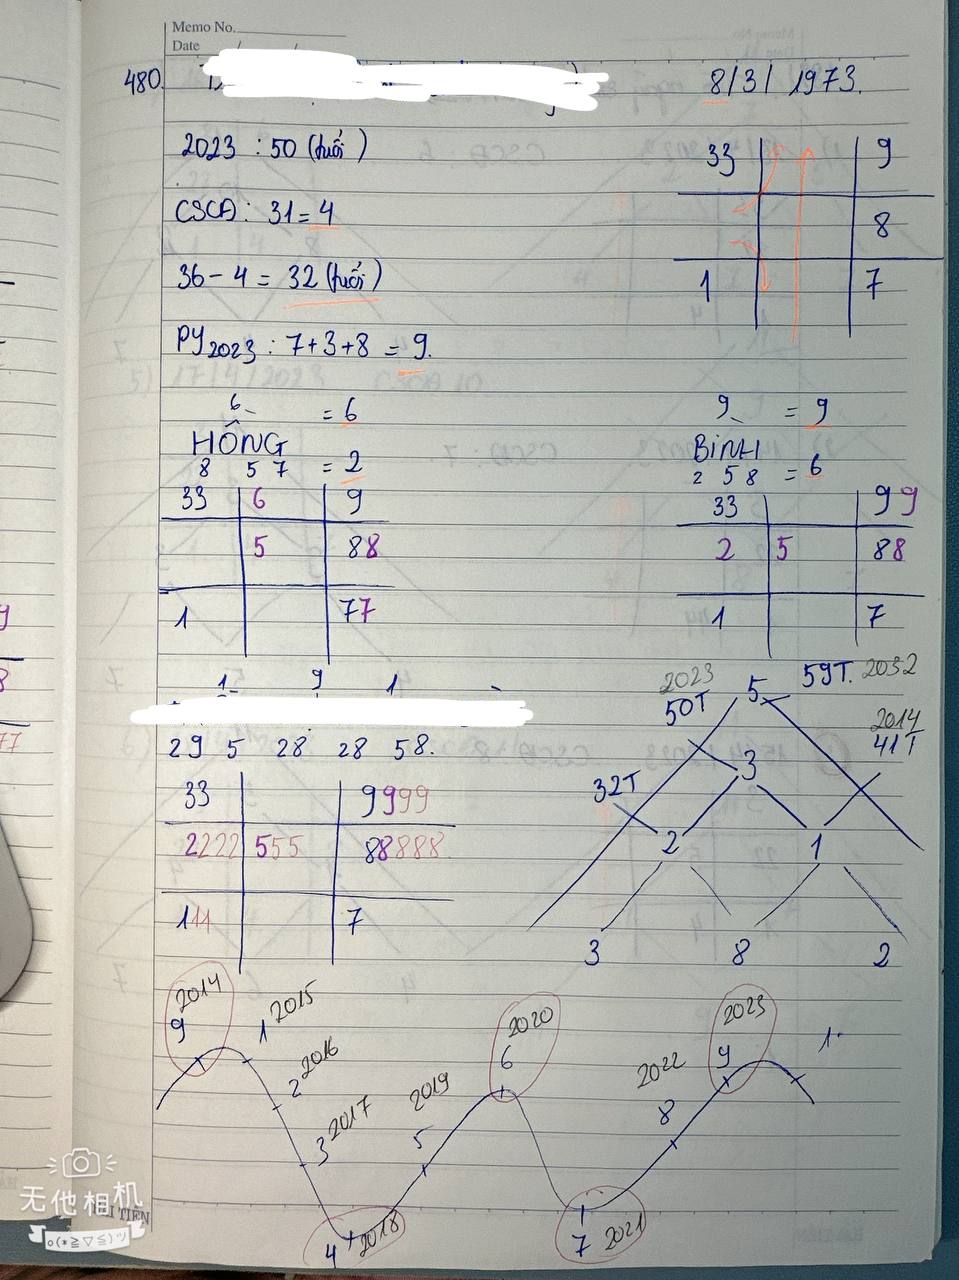 Memo No.
Date / /
480. 8/3/1973.
2023 : 50 (tuổi)
33 9
CSCĐ: 31 = 4
8
36 - 4 = 32 (tuổi)
1 7
PY2023 : 7+3+8 = 9.
6 = 6
HỒNG
8 5 7 = 2
33 6 9
5 88
1 77
9 = 9
BÌNH
2 5 8 = 6
33 99
2 5 88
1 7
1 9 1
29 5 28 28 58.
33 9999
2222 555 88888
111 7
2023 5 59T. 2032
50T 2014
41T
32T 3
2 1
3 8 2
2014 2015 2016 2017 2018 2019 2020 2021 2022 2023
9 1 2 3 4 5 6 7 8 9 1
无他相机
o(*≧▽≦)ツ
HẢI TIẾN
9
8
77